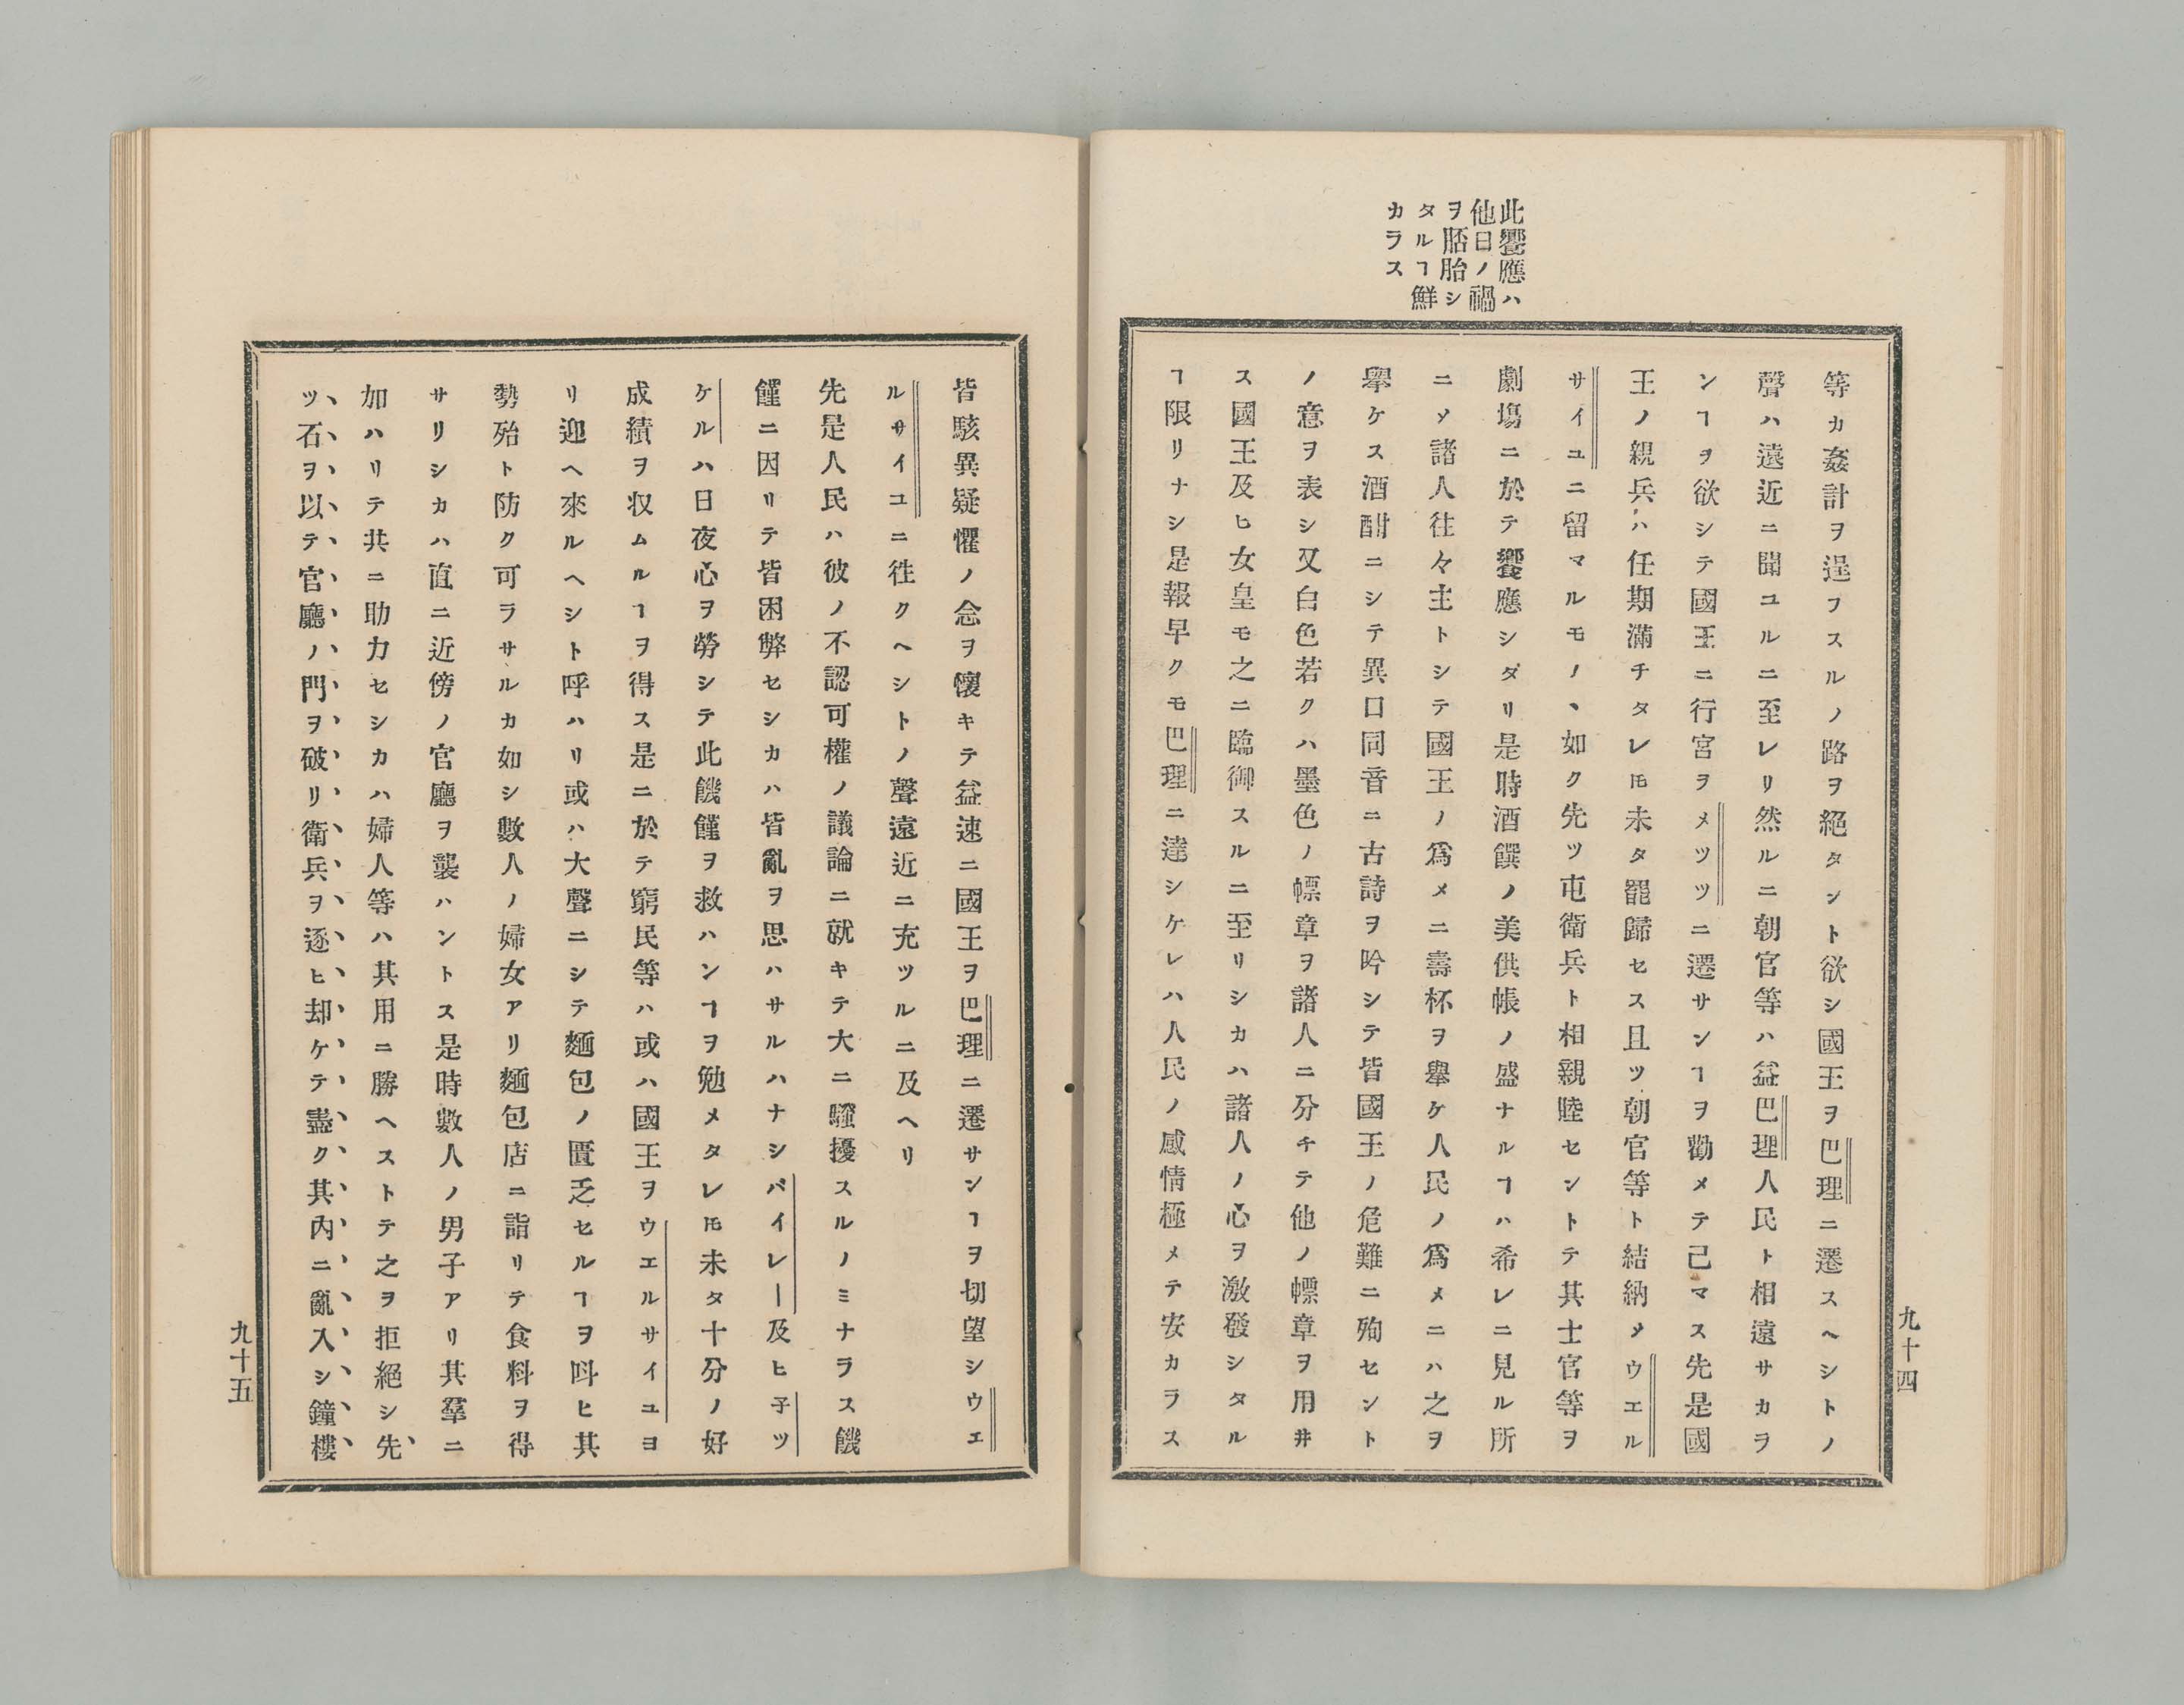 此饗應ハ
他日ノ禍
ヲ胚胎シ
タルヿ鮮
カラス
等カ姦計ヲ逞フスルノ路ヲ絕タント欲シ國王ヲ巴理ニ遷スヘシトノ
聲ハ遠近ニ聞ユルニ至レリ然ルニ朝官等ハ益巴理人民ト相遠サカラ
ンヿヲ欲シテ國王ニ行宮ヲメツツニ遷サンヿヲ勸メテ己マス先是國
王ノ親兵ハ任期滿チタレ𪜈未タ罷歸セス且ツ朝官等ト結納メウエル
サイユニ留マルモノヽ如ク先ツ屯衛兵ト相親睦セントテ其士官等ヲ
劇塲ニ於テ饗應シダリ是時酒饌ノ美供帳ノ盛ナルヿハ希レニ見ル所
ニメ諸人往々主トシテ國王ノ爲メニ壽杯ヲ擧ケ人民ノ爲メニハ之ヲ
擧ケス酒酣ニシテ異口同音ニ古詩ヲ吟シテ皆國王ノ危難ニ殉セント
ノ意ヲ表シ又白色若クハ墨色ノ幖章ヲ諸人ニ分チテ他ノ幖章ヲ用井
ス國王及ヒ女皇モ之ニ臨御スルニ至リシカハ諸人ノ心ヲ激發シタル
ヿ限リナシ是報早クモ巴理ニ達シケレハ人民ノ感情極メテ安カラス
九十四
皆駭異疑懼ノ念ヲ懷キテ益速ニ國王ヲ巴理ニ遷サンヿヲ切望シウエ
ルサイユニ徃クヘシトノ聲遠近ニ充ツルニ及ヘリ
先是人民ハ彼ノ不認可權ノ議論ニ就キテ大ニ騷擾スルノミナラス饑
饉ニ因リテ皆困弊セシカハ皆亂ヲ思ハサルハナシバイレー及ヒ子ツ
ケルハ日夜心ヲ勞シテ此饑饉ヲ救ハンヿヲ勉メタレ𪜈未タ十分ノ好
成績ヲ収ムルヿヲ得ス是ニ於テ窮民等ハ或ハ國王ヲウエルサイユヨ
リ迎ヘ來ルヘシト呼ハリ或ハ大聲ニシテ麵包ノ匱乏セルヿヲ叫ヒ其
勢殆ト防ク可ラサルカ如シ數人ノ婦女アリ麵包店ニ詣リテ食料ヲ得
サリシカハ直ニ近傍ノ官廳ヲ襲ハントス是時數人ノ男子アリ其羣ニ
加ハリテ共ニ助力セシカハ婦人等ハ其用ニ勝ヘストテ之ヲ拒絕シ先
ツ石ヲ以テ官廳ノ門ヲ破リ衛兵ヲ逐ヒ却ケテ盡ク其內ニ亂入シ鐘樓
九十五